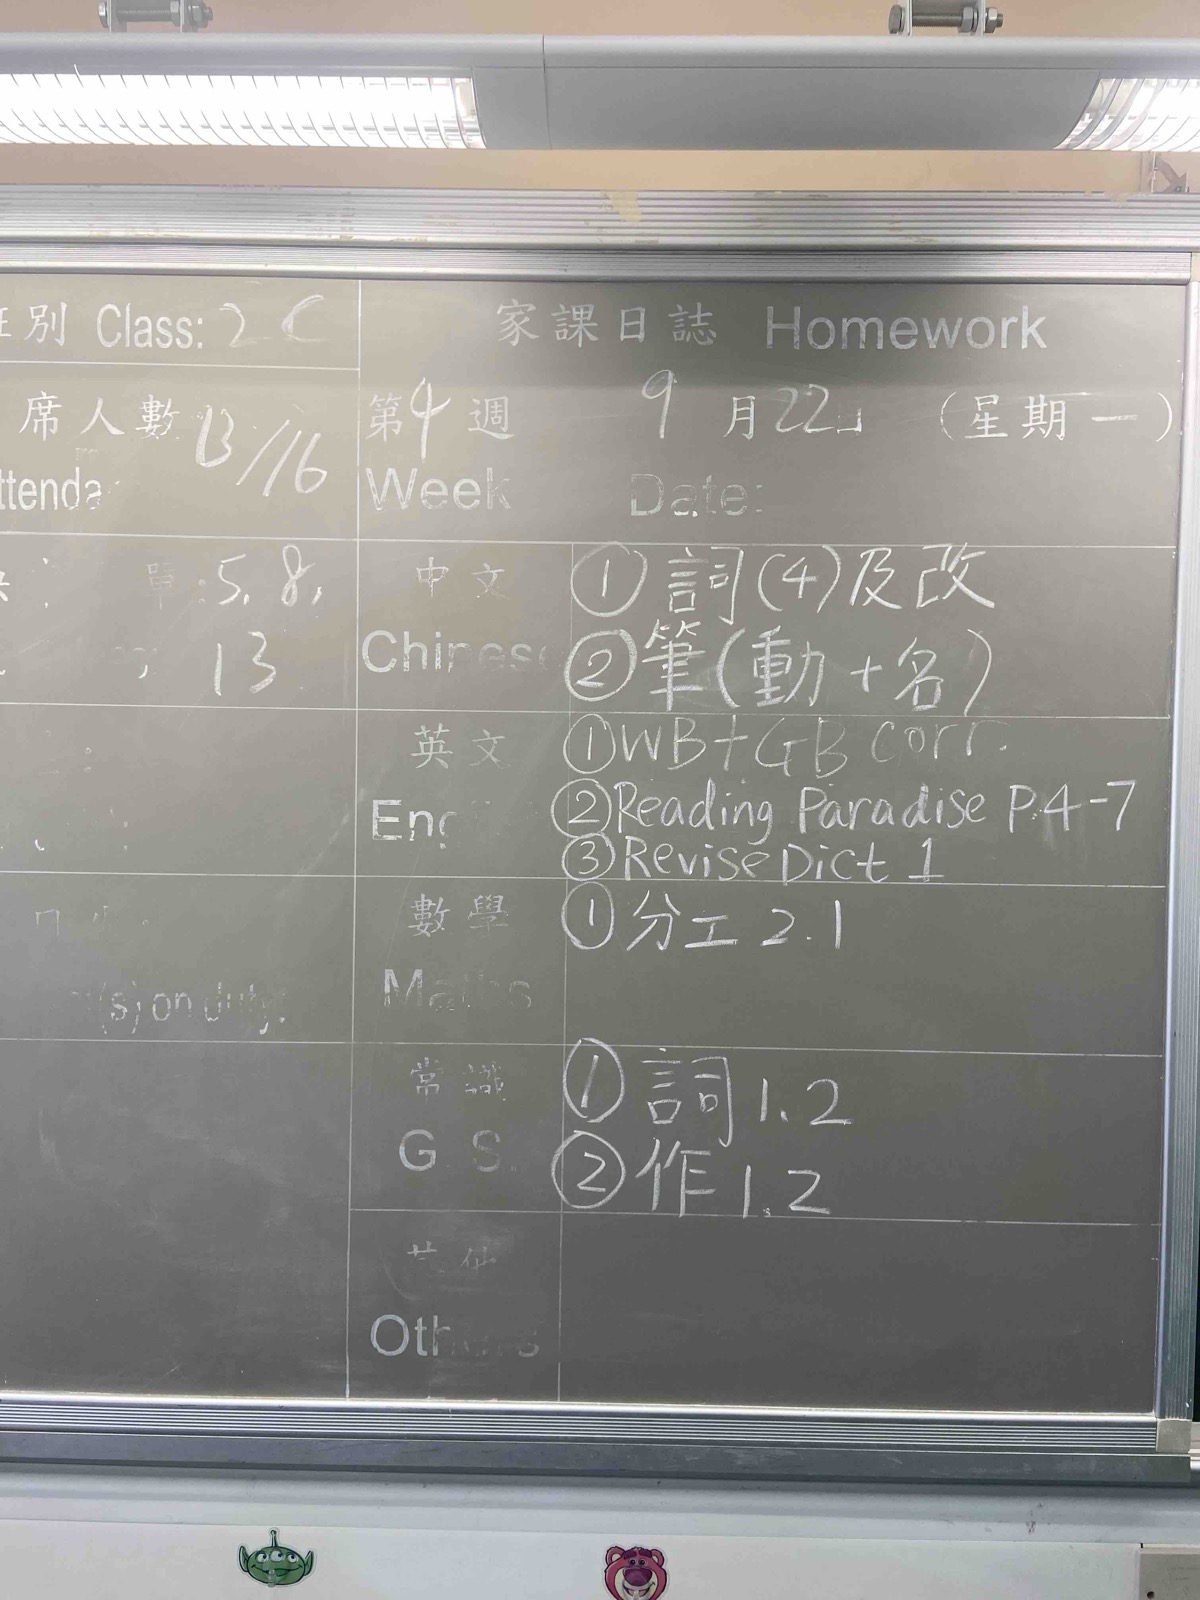 別 Class: 2C
家課日誌 Homework
席人數 13/16
第4週 9月22日 (星期一)
Week Date:
5, 8,
13
中文
Chinese
① 詞(4)及改
② 筆(動+名)
英文
Eng
① WB+GB corr.
② Reading Paradise P.4-7
③ Revise Dict 1
數學
Maths
① 分工 2.1
(s) on duty:
常識
G.S.
① 詞 1.2
② 作 1.2
其他
Others